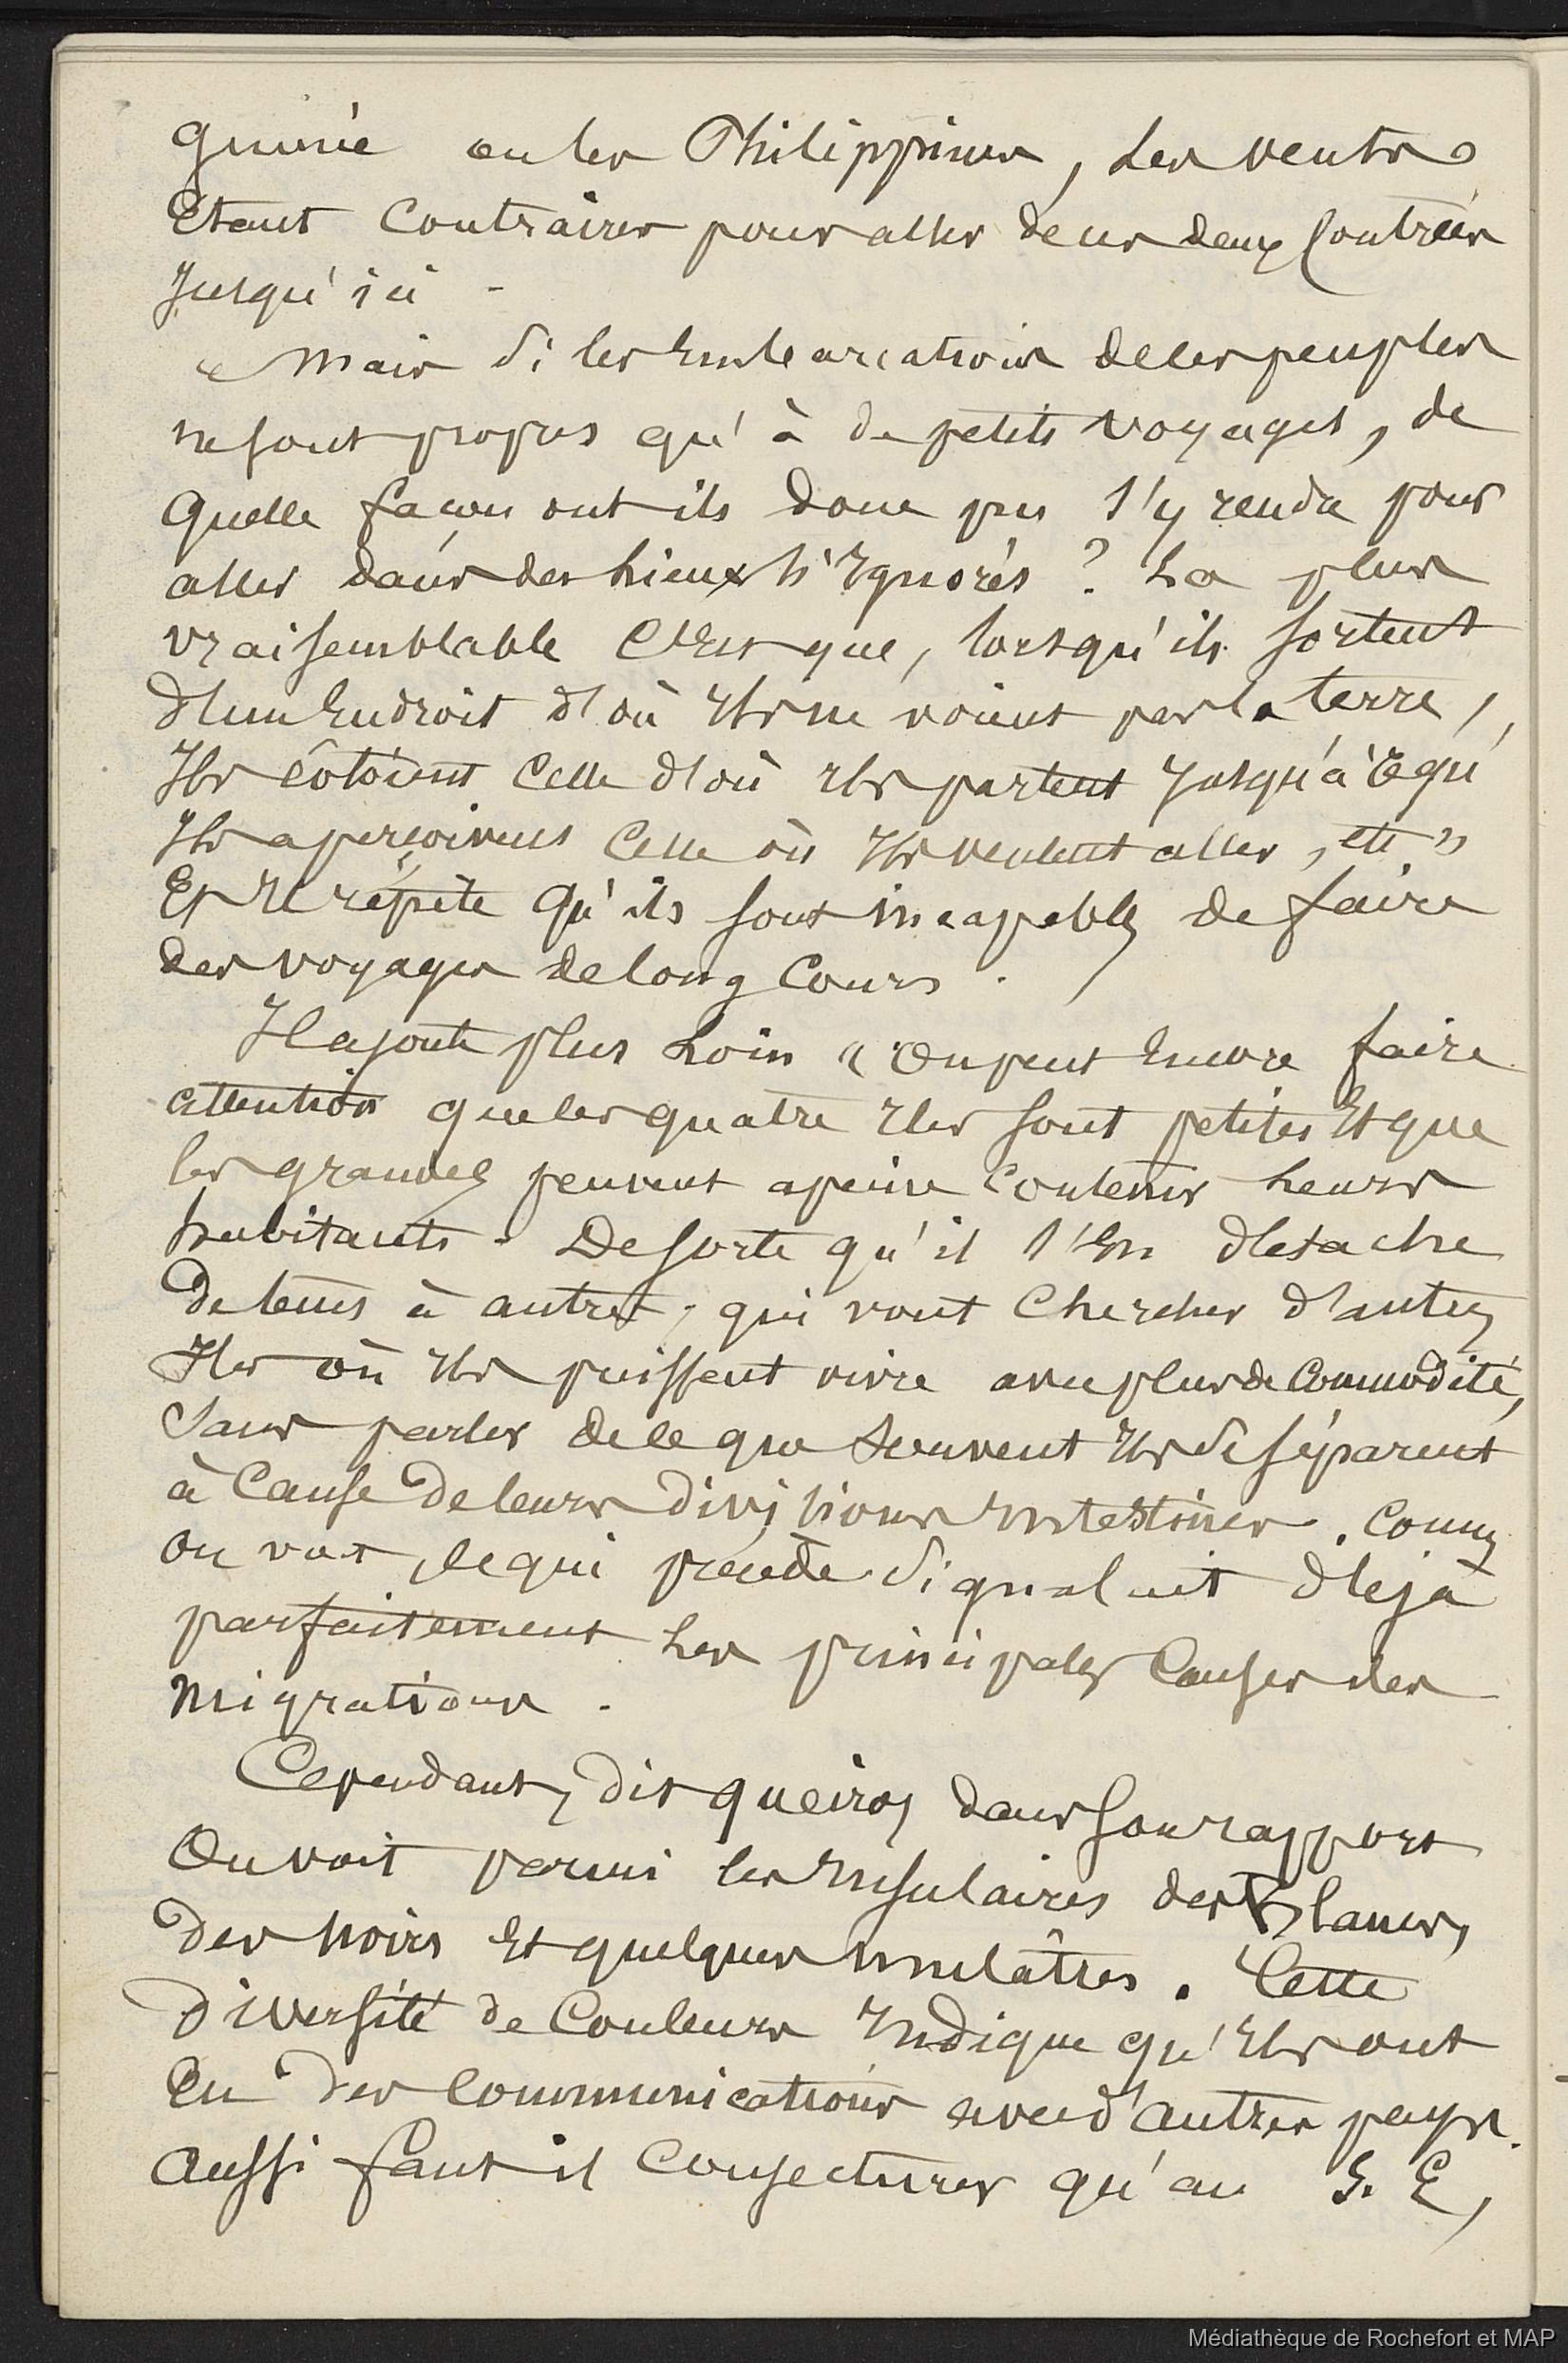 guinée ou les Philippines, les vents
Etant Contraires pour aller de ces deux Contrées
Jusqu'ici -
« Mais si les Embarcations de ces peuples
ne sont propres qu'à de petits voyages, de
quelle façon ont ils donc pu s'y rendre pour
aller dans des Lieux si Ignorés ? La plus
vraisemblable C'Est que, lorsqu'ils sortent
d'un Endroit d'où Ils ne voient pas la terre,
Ils côtoient Celle d'où Ils partent Jusqu'à Ce qu'
Ils aperçoivent Celle où Ils veulent aller, etc »
Et Il répète qu'ils sont incapables de faire
des voyages de long Cours .
Il ajoute plus Loin « On peut Encore faire
attention que les quatre Iles sont petites Et que
les grandes peuvent à peine Contenir Leurs
habitants - De sorte qu'il s'En détache
de tems à autres, qui vont Chercher d'autres
Iles où Ils puissent vivre avec plus de Commodité,
Sans parler de ce que souvent Ils se séparent
à Cause de leurs divisions Intestines . Comme
on voit, ce qui précède signalait déjà
parfaitement Les principales Causes des
Migrations .
Cependant, dit queiros dans son rapport
On voit parmi les Insulaires des Blancs,
des Noirs Et quelques mulâtres . Cette
diversité de Couleurs Indique qu'Ils ont
Eu des Communications avec d'autres pays.
Aussi faut il Conjecturer qu'au S. E,
Médiathèque de Rochefort et MAP